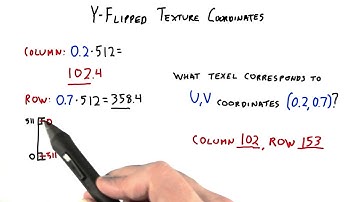 Y-FLIPPED TEXTURE COORDINATES
COLUMN: 0.2·512=
102.4
ROW: 0.7·512=358.4
511 0
0 511
WHAT TEXEL CORRESPONDS TO
U,V COORDINATES (0.2,0.7)?
COLUMN 102, ROW 153